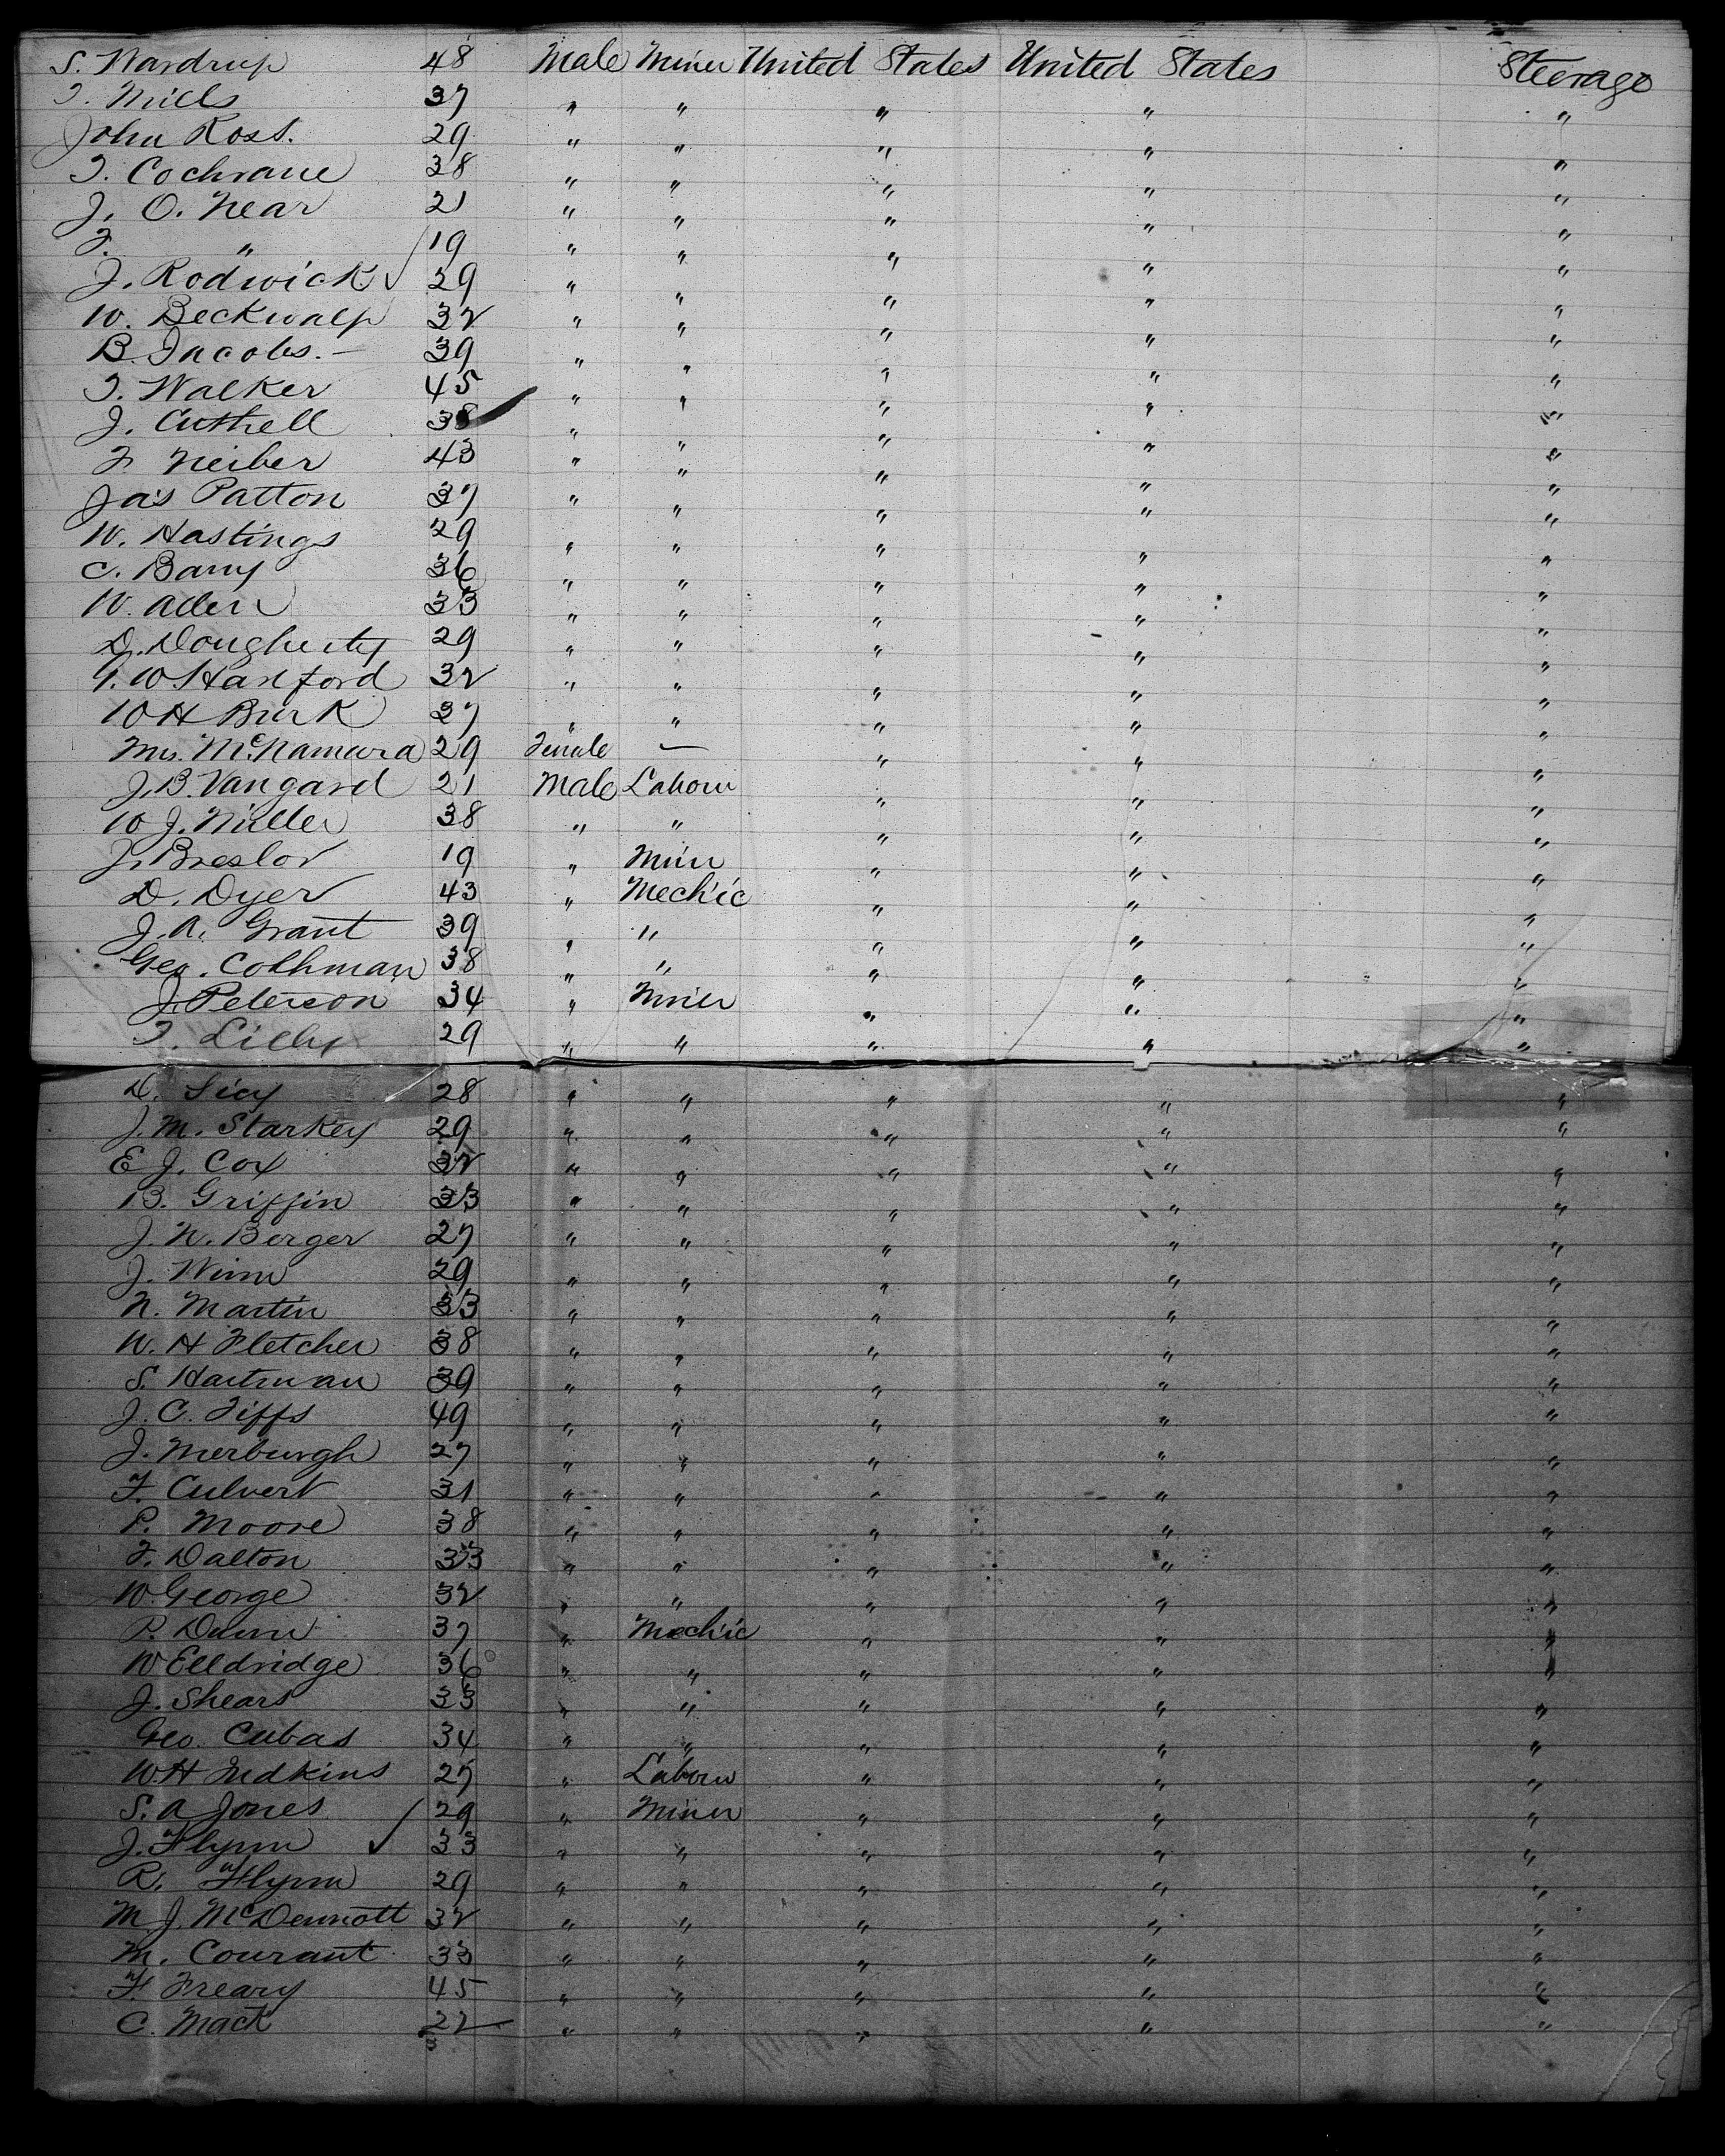 S. Wardrup 48 Male Miner United States United States Steerage
T. Mills 37 " " " " "
John Ross. 29 " " " " "
T. Cochrane 38 " " " " "
J. O. Near 21 " " " " "
F. " 19 " " " " "
J. Rodwick 29 " " " " "
W. Beckwalp 32 " " " " "
B. Jacobs. – 39 " " " " "
T. Walker 45 " " " " "
J. Cuthell 38 " " " " "
F. Neiber 43 " " " " "
Jas Patton 37 " " " " "
W. Hastings 29 " " " " "
C. Barry 36 " " " " "
W. Allen 33 " " " " "
D. Dougherty 29 " " " " "
G. W Hanford 32 " " " " "
W H Burk 37 " " " " "
Mrs. McNamara 29 Female — " " "
J. B. Vangard 21 Male Labour " " "
W J. Miller 38 " " " " "
J. Breslor 19 " Miner " " "
D. Dyer 43 " Mech'ic " " "
J. A. Grant 39 " " " " "
Geo. Colhman 38 " " " " "
J. Peterson 34 " Miner " " "
T. Lilly 29 " " " " "
D. 28 " " " " "
J. M. Starkey 29 " " " " "
E J. Cox 32 " " " " "
B. Griffin 33 " " " " "
J. N. Berger 27 " " " " "
J. Winn 29 " " " " "
N. Martin 33 " " " " "
W. H Fletcher 38 " " " " "
S. Hartman 39 " " " " "
J. C. Tiffs 49 " " " " "
J. Merburgh 27 " " " " "
F. Culvert 31 " " " " "
P. Moore 38 " " " " "
F. Dalton 33 " " " " "
W. George 32 " " " " "
P. Dunn 37 " Mech'ic " " "
W Elldridge 36 " " " " "
J. Shears 33 " " " " "
Geo. Cubas 34 " " " " "
W. H Judkins 27 " Labour " " "
S. A Jones 29 " Miner " " "
J. Flynn 33 " " " " "
R. Flynn 29 " " " " "
M J. McDermott 32 " " " " "
M. Courant 33 " " " " "
F. Freary 45 " " " " "
C. Mack 22 " " " " "